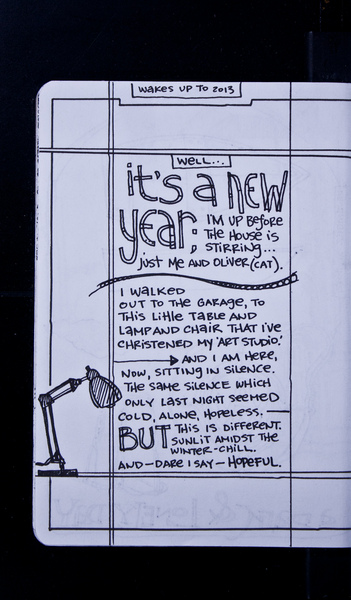 WAKES UP TO 2013
WELL...
it's a NEW
year;
I'M UP BEFORE
THE HOUSE IS
STIRRING...
JUST ME AND OLIVER (CAT).
I WALKED
OUT TO THE GARAGE, TO
THIS LITTLE TABLE AND
LAMP AND CHAIR THAT I'VE
CHRISTENED MY 'ART STUDIO.'
AND I AM HERE,
NOW, SITTING IN SILENCE.
THE SAME SILENCE WHICH
ONLY LAST NIGHT SEEMED
COLD, ALONE, HOPELESS.
BUT THIS IS DIFFERENT.
SUNLIT AMIDST THE
WINTER-CHILL.
AND—DARE I SAY—HOPEFUL.